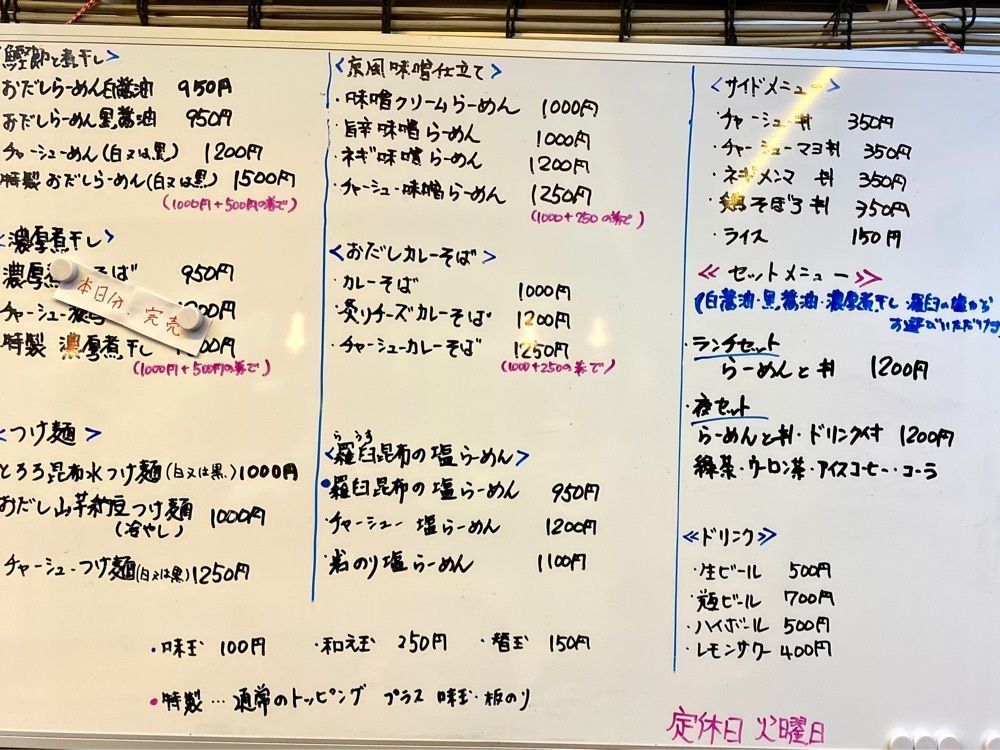 鰹節と煮干し>
おだしらーめん白醤油 950円
おだしらーめん黒醤油 950円
チャーシューめん(白又は黒) 1200円
特製おだしらーめん(白又は黒) 1500円
(1000円+500円の券で)
<濃厚煮干し>
濃厚煮 そば 950円
本日分、完売
チャーシュー濃 00円
特製 濃厚煮干し 00円
(1000円+500円の券で)
<つけ麺>
とろろ昆布水つけ麺(白又は黒)1000円
おだし山芋納豆つけ麺 1000円
(冷やし)
チャーシューつけ麺(白又は黒)1250円
<京風味噌仕立て>
・味噌クリームらーめん 1000円
・旨辛味噌らーめん 1000円
・ネギ味噌らーめん 1200円
・チャーシュー味噌らーめん 1250円
(1000+250の券で)
<おだしカレーそば>
・カレーそば 1000円
・炙りチーズカレーそば 1200円
・チャーシューカレーそば 1250円
(1000+250の券で)
らうす
<羅臼昆布の塩らーめん>
・羅臼昆布の塩らーめん 950円
・チャーシュー塩らーめん 1200円
・岩のり塩らーめん 1100円
<サイドメニュー>
・チャーシュー丼 350円
・チャーシューマヨ丼 350円
・ネギメンマ丼 350円
・鶏そぼろ丼 350円
・ライス 150円
≪セットメニュー≫
(白醤油・黒醤油・濃厚煮干し・羅臼の塩から
お選びいただけ
・ランチセット
らーめんと丼 1200円
・夜セット
らーめんと丼・ドリンク付 1200円
緑茶・ウーロン茶・アイスコーヒー・コーラ
≪ドリンク≫
・生ビール 500円
・瓶ビール 700円
・ハイボール 500円
・レモンサワー 400円
・味玉 100円 ・和え玉 250円 ・替玉 150円
・特製…通常のトッピング プラス 味玉・板のり
定休日 火曜日